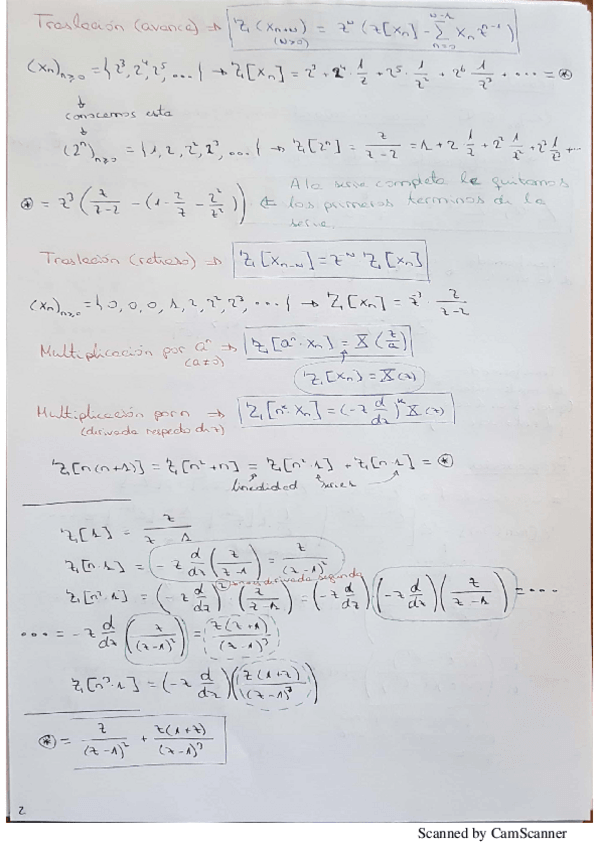 Traslación (avance) → Z[x_{n+N}] (N>0) = z^N (Z[x_n] - Σ_{n=0}^{N-1} x_n z^{-n})
(x_n)_{n≥0} = {2³, 2⁴, 2⁵, ...} → Z[x_n] = 2³ + 2⁴ · 1/z + 2⁵ · 1/z² + 2⁶ · 1/z³ + ... = ⊛
↓
conocemos esta
↓
(2ⁿ)_{n≥0} = {1, 2, 2², 2³, ...} → Z[2ⁿ] = z/(z-2) = 1 + 2 · 1/z + 2² · 1/z² + 2³ 1/z³ + ...
⊛ = z³ (z/(z-2) - (1 - 2/z - 2²/z²)) ← A la serie completa le quitamos
los primeros terminos de la
serie
Traslación (retraso) → Z[x_{n-N}] = z^{-N} Z[x_n]
(x_n)_{n≥0} = {0, 0, 0, 1, 2, 2², 2³, ...} → Z[x_n] = z^{-3} z/(z-2)
Multiplicación por aⁿ → Z[aⁿ · x_n] = X(z/a)
(a≠0)
Z[x_n] = X(z)
Multiplicación por n → Z[n^k · x_n] = (-z d/dz)^k X(z)
(derivada respecto de z)
Z[n(n+1)] = Z[n²+n] = Z[n²·1] + Z[n·1] = ⊛
linealidad series
Z[1] = z/(z-1)
Z[n·1] = -z d/dz (z/(z-1)) = z/(z-1)²
no es derivada segunda
Z[n²·1] = (-z d/dz)² · (z/(z-1)) = (-z d/dz) · (-z d/dz)(z/(z-1)) = ...
... = -z d/dz (z/(z-1)²) = z(z+1)/(z-1)³
Z[n³·1] = (-z d/dz)(z(1+z)/(z-1)³)
⊛ = z/(z-1)² + z(1+z)/(z-1)³
2
Scanned by CamScanner